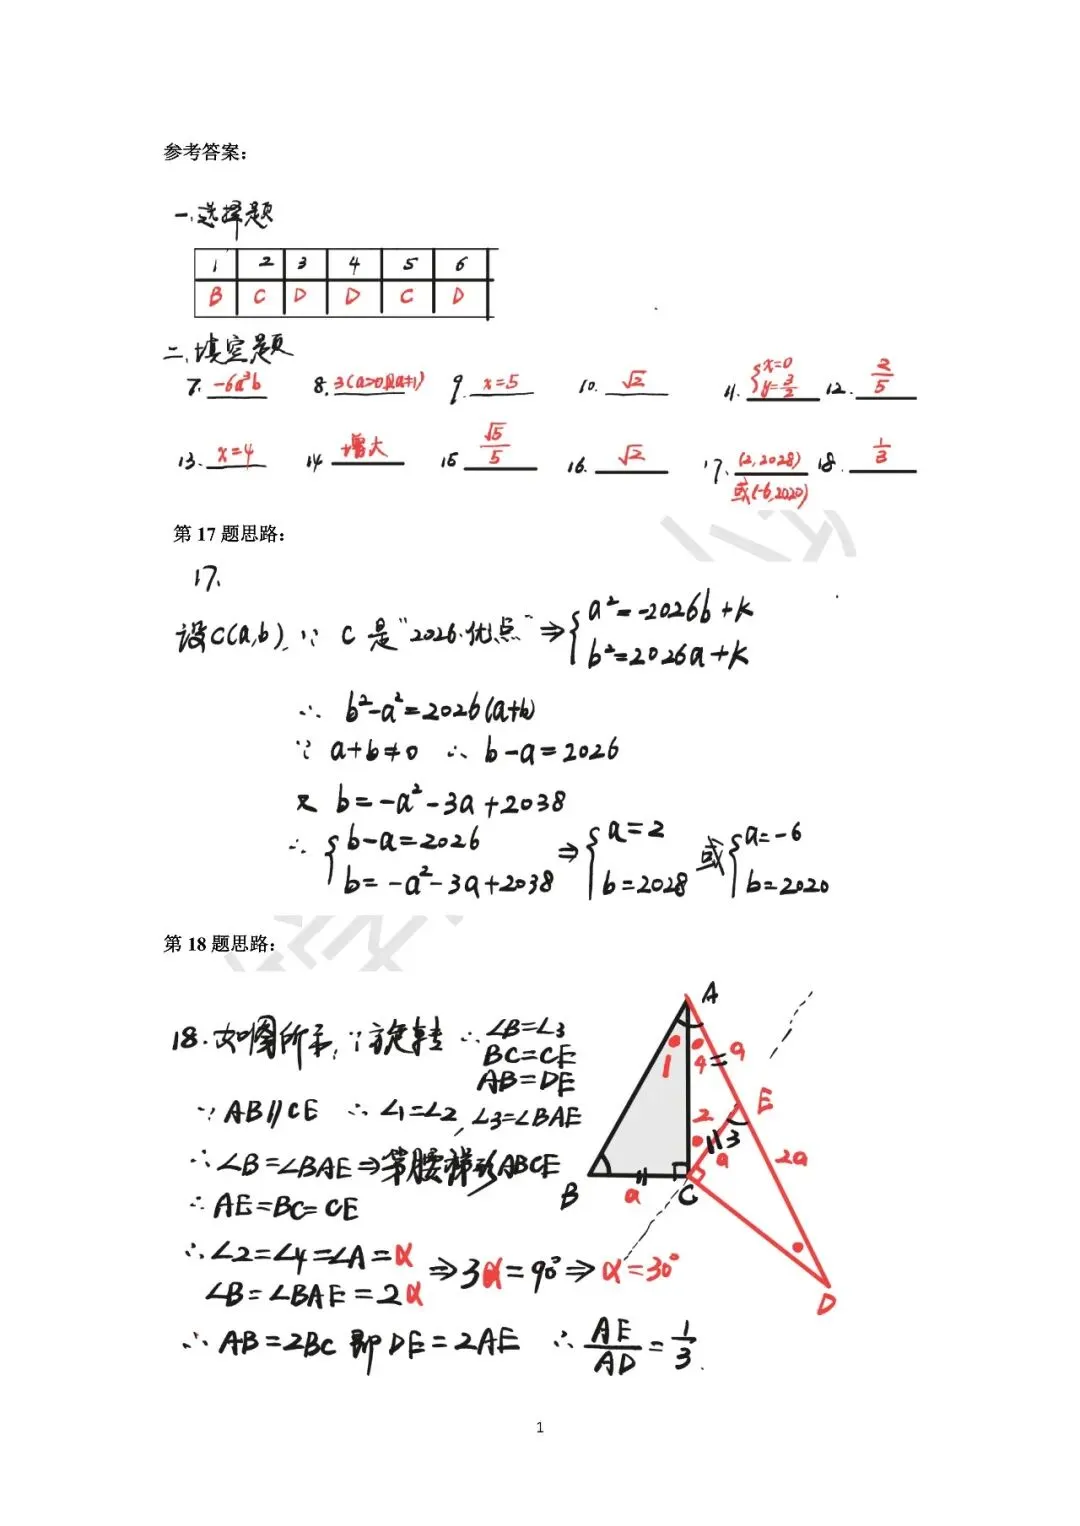 参考答案：
一、选择题
1 2 3 4 5 6
B C D D C D
二、填空题
7. -6a³b 8. 9. x=5 10. √2 11. {x=0 y=3/2 12. 2/5
13. x=4 14. 增大 15. √5/5 16. √2 17. (2,2028) 18. 1/3
或(-6,2020)
第 17 题思路：
17.
设C(a,b), ∵ C 是"2026·优点" ⇒ {a²=-2026b+k
b²=2026a+k
∴ b²-a²=2026(a+b)
∵ a+b≠0 ∴ b-a=2026
又 b=-a²-3a+2038
∴ {b-a=2026 ⇒ {a=2 或 {a=-6
b=-a²-3a+2038 b=2028 b=2020
第 18 题思路：
18. 如图所示, ∵旋转 ∴ ∠B=∠3
BC=CE
AB=DE
∵ AB∥CE ∴ ∠1=∠2, ∠3=∠BAE
∴ ∠B=∠BAE ⇒ 等腰梯形ABCE
∴ AE=BC=CE
∴ ∠2=∠4=∠A=α ⇒ 3α=90° ⇒ α=30°
∠B=∠BAE=2α
∴ AB=2BC 即 DE=2AE ∴ AE/AD=1/3.
A
1 4 a
2 E
3
a 2a
B a C
D
1